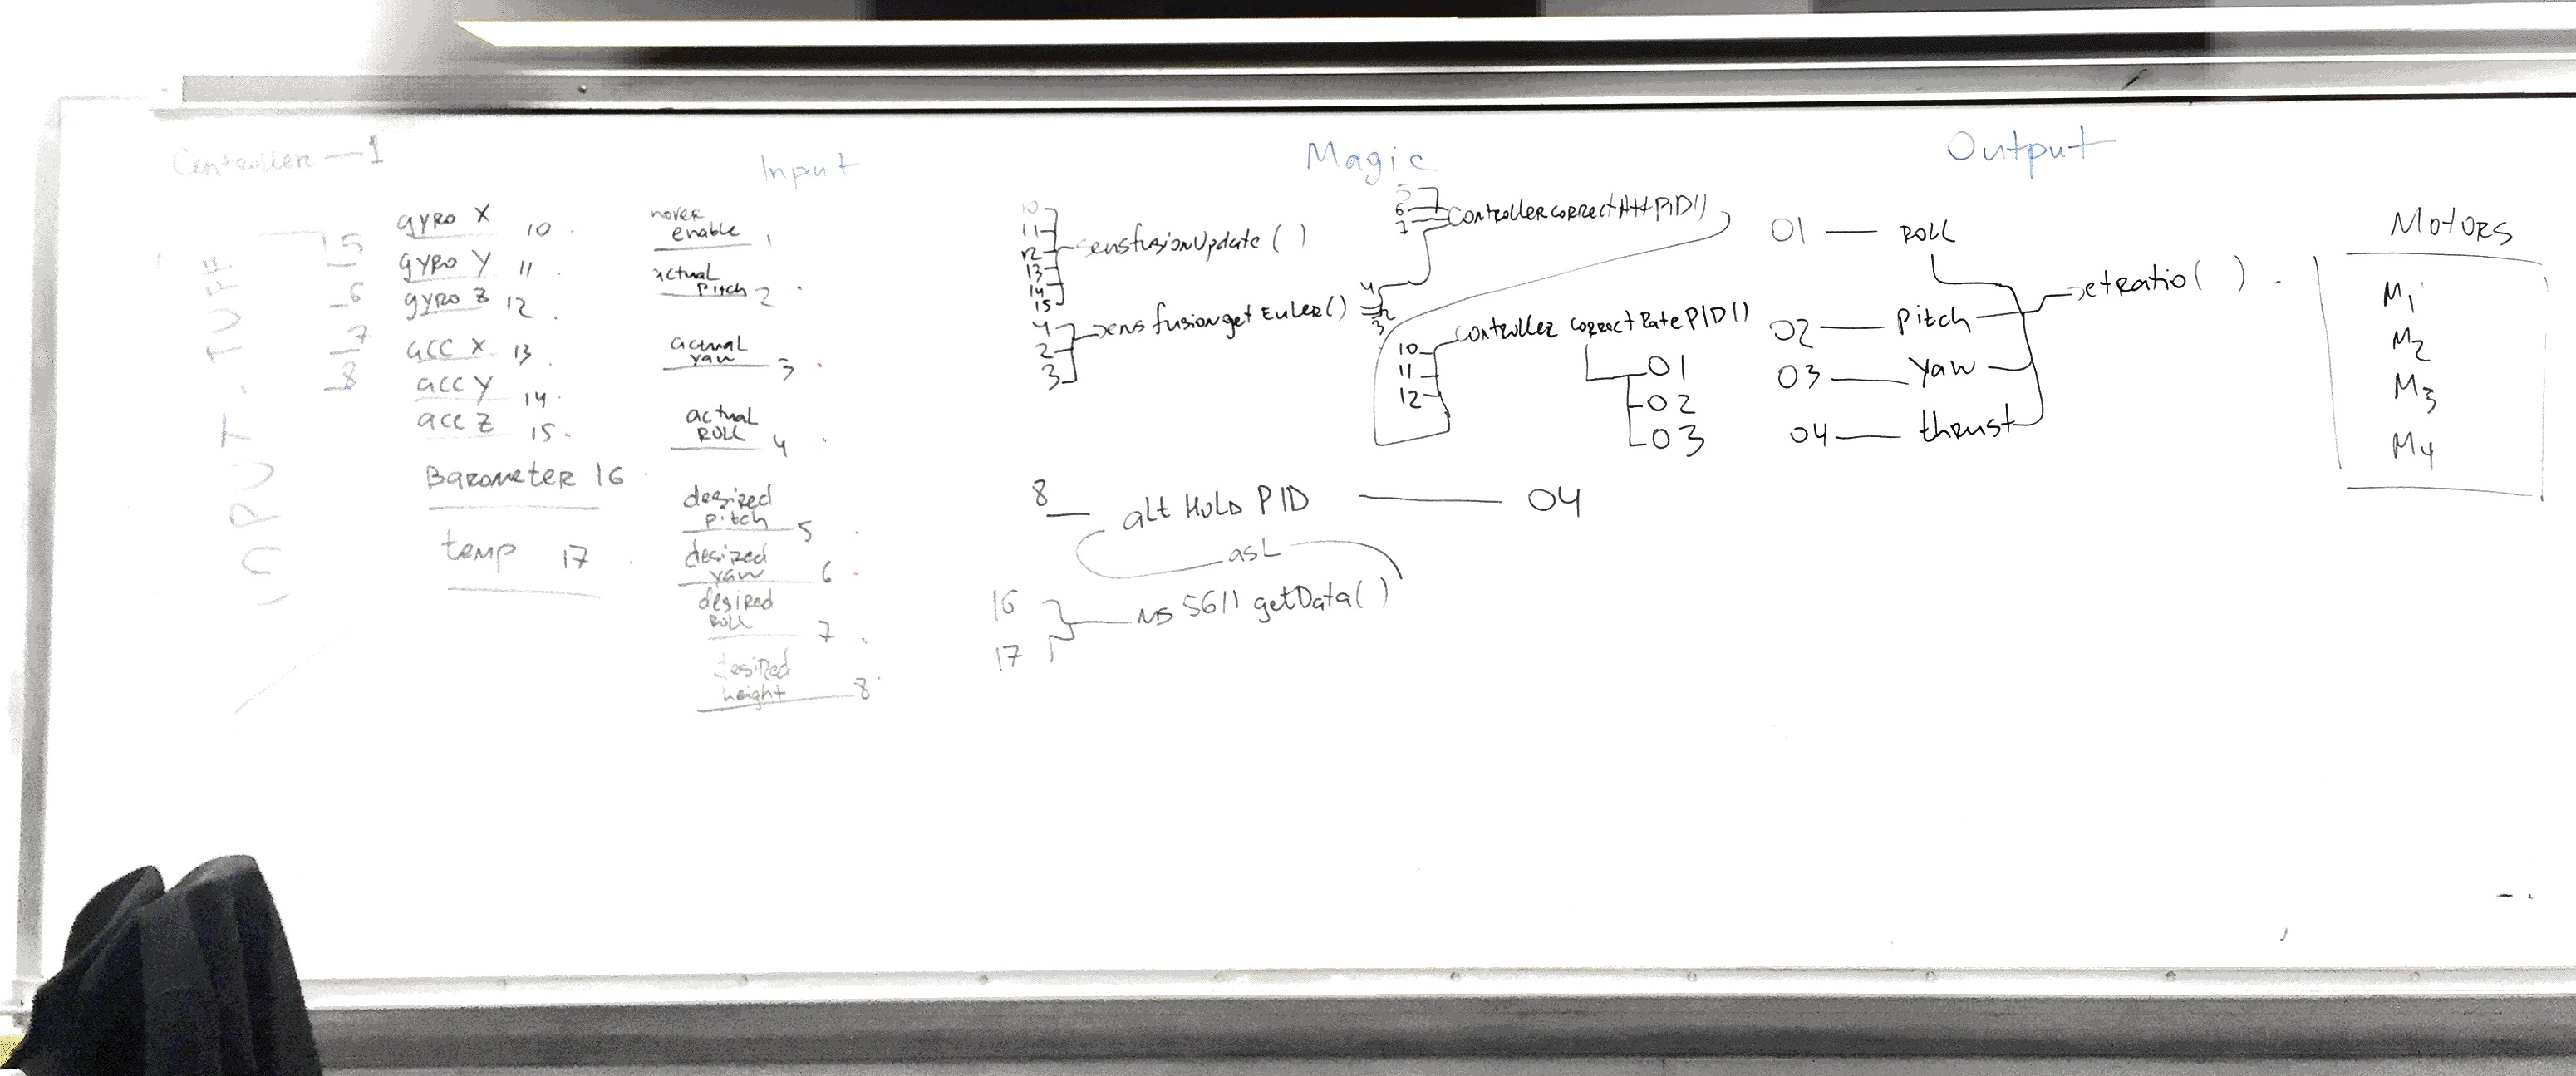 Controller — 1
Input
Magic
Output
INPUT. TUFF
5
6
7
8
gyro X 10
gyro Y 11
gyro Z 12
acc X 13
acc Y 14
acc Z 15
Barometer 16
temp 17
hover
enable 1
actual
pitch 2
actual
yaw 3
actual
ROLL 4
desired
pitch 5
desired
yaw 6
desired
ROLL 7
desired
height 8
10
11
12
13
14
15
sensfusionUpdate ( )
4
2
3
sensfusionget Euler()
5
6
7
ControllercorrectAttPID()
4
2
3
controller correctRatePID()
10
11
12
01
02
03
8
alt Hold PID
04
asL
16
17
MS 5611 getData( )
01 — ROLL
02 — Pitch
03 — Yaw
04 — thrust
setRatio( )
Motors
M1
M2
M3
M4